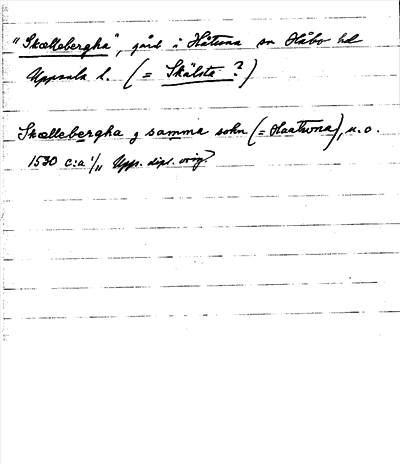 "Skællebergha", gård i Håtuna sn Håbo hd
Uppsala l. (= Skälsta?)
Skællebergha j samma sokn (= Haatwna), u.o.
1530 c:a 1/11 Upps. dipl. orig.